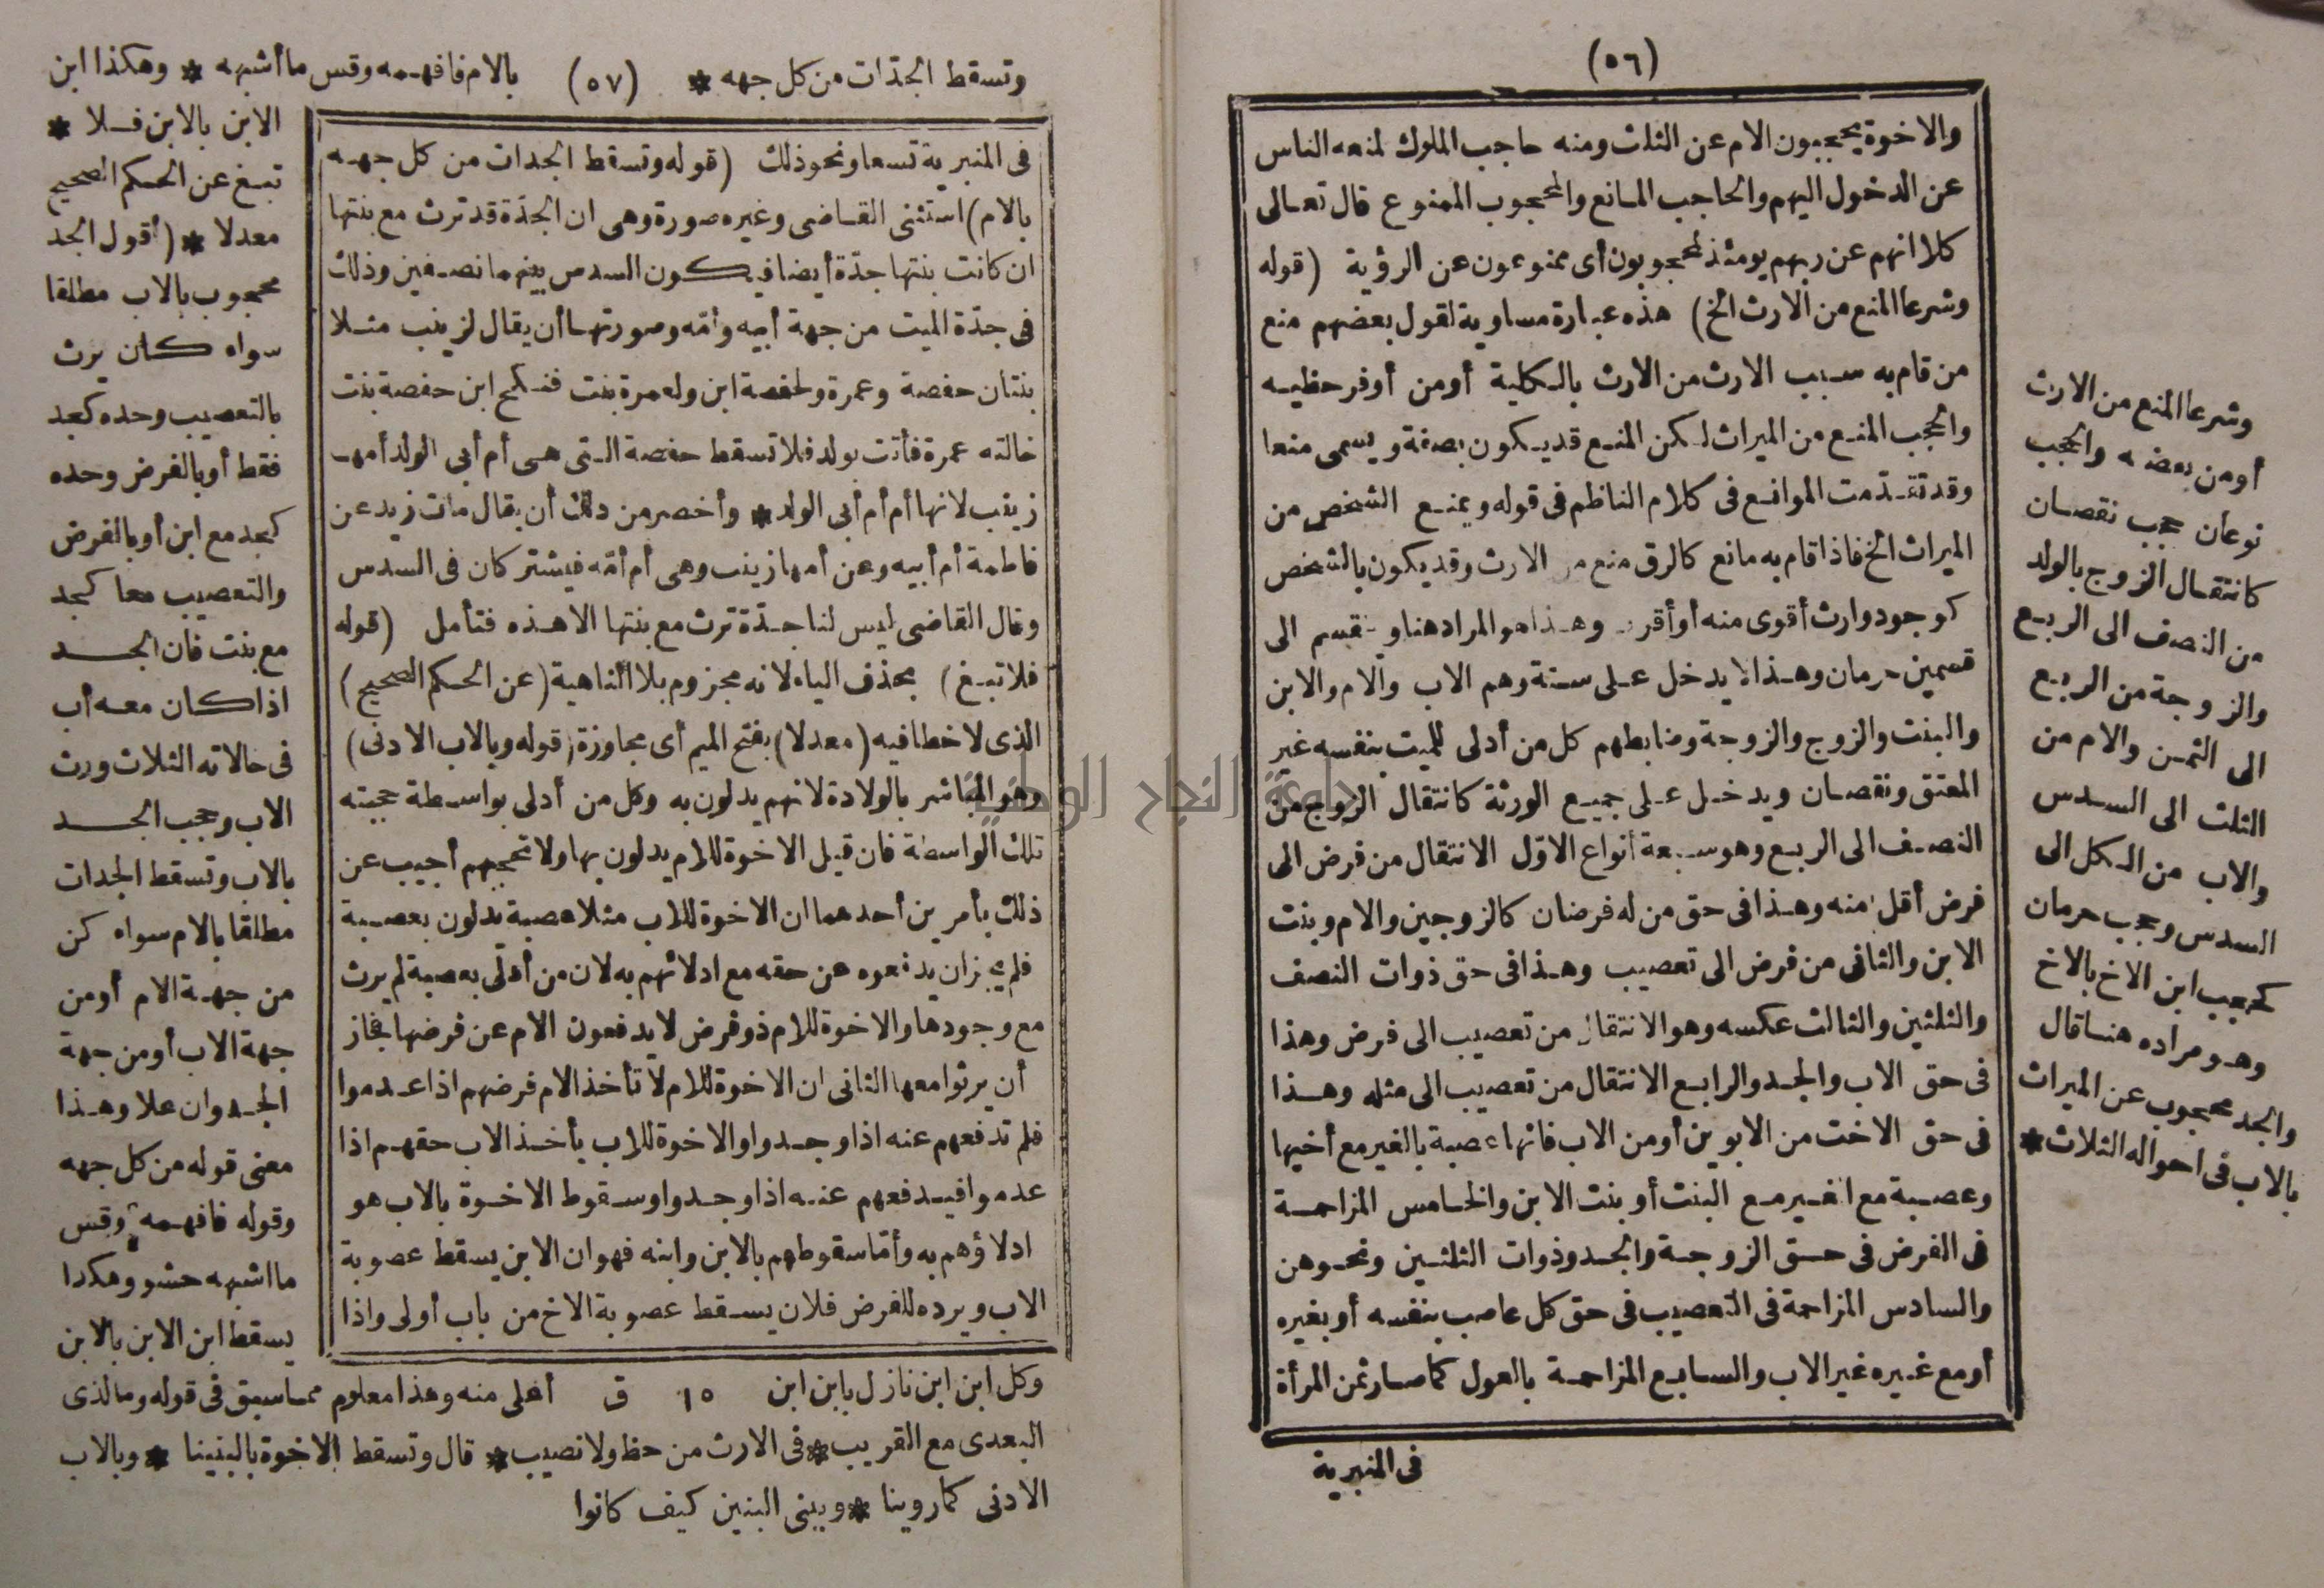 (٥٦)
والاخوة يحجبون الام عن الثلث ومنه حاجب الملوك لمنعه الناس
عن الدخول اليهم والحاجب المانع والمحجوب الممنوع قال تعالى
كلا انهم عن ربهم يومئذ لمحجوبون أى ممنوعون عن الرؤية (قوله
وشرعا المنع من الارث الخ) هذه عبارة مساوية لقول بعضهم منع
من قام به سبب الارث من الارث بالكلية أو من أوفر حظيه
والحجب المنع من الميراث لكن المنع قد يكون بصفة ويسمى منعا
وقد تقدّمت الموانع فى كلام الناظم فى قوله ويمنع الشخص من
الميراث الخ فاذا قام به مانع كالرق منع من الارث وقد يكون بالشخص
كوجود وارث أقوى منه أو أقرب وهذا هو المراد هنا وينقسم الى
قسمين حرمان وهذا لا يدخل على ستة وهم الاب والام والابن
والبنت والزوج والزوجة وضابطهم كل من أدلى للميت بنفسه غير
المعتق ونقصان ويدخل على جميع الورثة كانتقال الزوج من
النصف الى الربع وهو سبعة أنواع الاوّل الانتقال من فرض الى
فرض أقل منه وهذا فى حق من له فرضان كالزوجين والام وبنت
الابن والثانى من فرض الى تعصيب وهذا فى حق ذوات النصف
والثلثين والثالث عكسه وهو الانتقال من تعصيب الى فرض وهذا
فى حق الاب والجد والرابع الانتقال من تعصيب الى مثله وهذا
فى حق الاخت من الابوين أو من الاب فانها عصبة بالغير مع أخيها
وعصبة مع الغير مع البنت أو بنت الابن والخامس المزاحمة
فى الفرض فى حق الزوجة والجد وذوات الثلثين ونحوهن
والسادس المزاحمة فى التعصيب فى حق كل عاصب بنفسه أو بغيره
أو مع غيره غير الاب والسابع المزاحمة بالعول كما صار ثمن المرأة
فى المنبرية
وشرعا المنع من الارث
أو من بعضه والحجب
نوعان حجب نقصان
كانتقال الزوج بالولد
من النصف الى الربع
والزوجة من الربع
الى الثمن والام من
الثلث الى السدس
والاب من الكل الى
السدس وحجب حرمان
كحجب ابن الاخ بالاخ
وهو مراده هنا قال
والجد محجوب عن الميراث
بالاب فى احواله الثلاث *
وتسقط الجدّات من كل جهه * (٥٧) بالام فافهمه وقس ما أشبهه * وهكذا ابن
فى المنبرية تسعا ونحو ذلك (قوله وتسقط الجدات من كل جهه
بالام) استثنى القاضى وغيره صورة وهى ان الجدّة قد ترث مع بنتها
ان كانت بنتها جدّة أيضا فيكون السدس بينهما نصفين وذلك
فى جدّة الميت من جهة أبيه وأمّه وصورتها أن يقال لزينب مثلا
بنتان حفصة وعمرة ولحفصة ابن ولعمرة بنت فنكح ابن حفصة بنت
خالته عمرة فأتت بولد فلا تسقط حفصة التى هى أم أبى الولد أمها
زينب لانها أم أم أبى الولد * وأخصر من ذلك أن يقال مات زيد عن
فاطمة أم أبيه وعن أمها زينب وهى أم أمّه فيشتركان فى السدس
وقال القاضى ليس لنا جدّة ترث مع بنتها الا هذه فتأمل (قوله
فلا تبغ) بحذف الياء لانه مجزوم بلا الناهية (عن الحكم الصحيح)
الذى لا خطا فيه (معدلا) بفتح الميم أى مجاوزة (قوله وبالاب الادنى)
وهو المباشر بالولادة لانهم يدلون به وكل من أدلى بواسطة حجبته
تلك الواسطة فان قيل الاخوة للام يدلون بها ولا تحجبهم أجيب عن
ذلك بأمرين أحدهما ان الاخوة للاب مثلا عصبة يدلون بعصبة
فلم يجز ان يدفعوه عن حقه مع ادلائهم به لان من أدلى بعصبة لم يرث
مع وجودها والاخوة للام ذو فرض لا يدفعون الام عن فرضها فجاز
أن يرثوا معها الثانى ان الاخوة للام لا تأخذ الام فرضهم اذا عدموا
فلم تدفعهم عنه اذا وجدوا والاخوة للاب يأخذ الاب حقهم اذا
عدموا فيدفعهم عنه اذا وجدوا وسقوط الاخوة بالاب هو
ادلاؤهم به وأمّا سقوطهم بالابن وابنه فهو ان الابن يسقط عصوبة
الاب ويرده للفرض فلان يسقط عصوبة الاخ من باب أولى واذا
الابن بالابن فلا *
تبغ عن الحكم الصحيح
معدلا * (أقول الجد
محجوب بالاب مطلقا
سواء كان يرث
بالتعصيب وحده كجد
فقط أو بالفرض وحده
كجد مع ابن أو بالفرض
والتعصيب معا كجد
مع بنت فان الجد
اذا كان معه أب
فى حالاته الثلاث ورث
الاب وحجب الجد
بالاب وتسقط الجدات
مطلقا بالام سواء كن
من جهة الام أو من
جهة الاب أو من جهة
الجد وان علا وهذا
معنى قوله من كل جهه
وقوله فافهمه وقس
ما اشبهه حشو وهكذا
يسقط ابن الابن بالابن
وكل ابن ابن نازل بابن ابن ١٥ ق أعلى منه وهذا معلوم مما سبق فى قوله وما لذى
البعدى مع القريب * فى الارث من حظ ولا نصيب * قال وتسقط الاخوة بالبنينا * وبالاب
الادنى كما روينا * وببنى البنين كيف كانوا
جامعة النجاح الوطنية